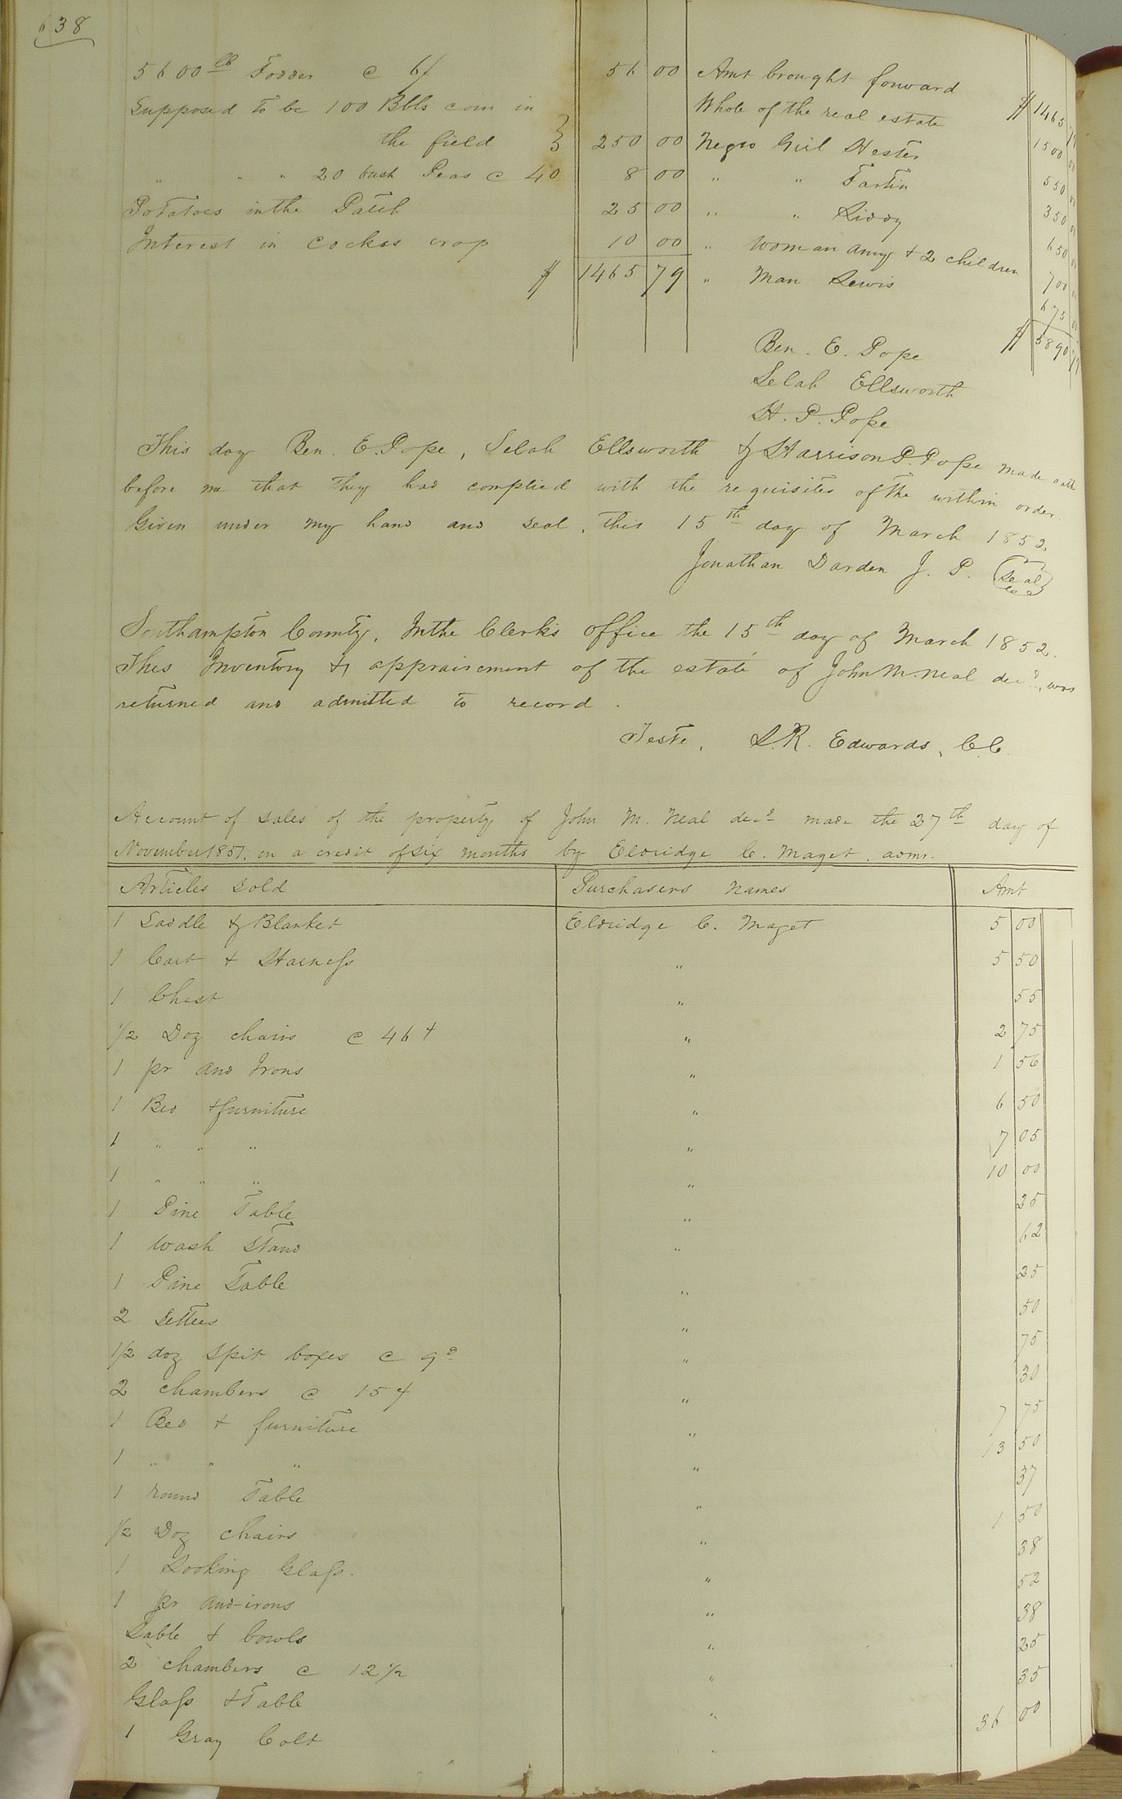 638
5600 lb Fodder @ 6/ 56 00
Supposed to be 100 Bbls corn in
the field } 250 00
" " " 20 bush Peas @ 40 8 00
Potatoes in the Patch 25 00
Interest in Cockes crop 10 00
$ 1465 79
Amt brought forward $ 1465 79
Whole of the real estate 1500 00
Negro Girl Hester 550 00
" " 350 00
" " Liddy 650 00
" Woman Amy & 2 children 700 00
" Man Lewis 675 00
$ 5890 79
Ben. E. Pope
Selah Ellsworth
H. P. Pope
This day Ben. E. Pope, Selah Ellsworth & Harrison P. Pope made oath
before me that they had complied with the requisites of the within order.
Given under my hand and seal, this 15th day of March 1852.
Jonathan Darden J. P. (Seal)
Southampton County, In the Clerk's office the 15th day of March 1852.
This Inventory & appraisement of the estate of John M. Neal decd, was
returned and admitted to record.
Teste, L. R. Edwards, C.C.
Account of sales of the property of John M. Neal decd made the 27th day of
November 1851. on a credit of six months by Eldridge C. Maget. admr.
Articles Sold Purchasers Names Amt
1 Saddle & Blanket Eldridge C. Maget 5 00
1 Cart & Harness " 5 50
1 Chest " 55
1/2 Doz chairs @ 46 " 2 75
1 pr and Irons " 1 56
1 Bed & furniture " 6 50
1 " " " " 7 05
1 " " " " 10 00
1 Pine Table " 25
1 Wash Stand " 62
1 Pine Table " 25
2 Settees " 50
1/2 doz Spit boxes @ 9d " 75
2 chambers @ 15 " 30
1 Bed & furniture " 7 75
1 " " " " 13 50
1 round Table " 37
1/2 Doz chairs " 1 50
1 Looking Glass. " 38
1 pr and-irons " 52
Table & bowls " 38
2 chambers @ 12 1/2 " 25
Glass & Table " 35
1 Gray Colt " 36 00